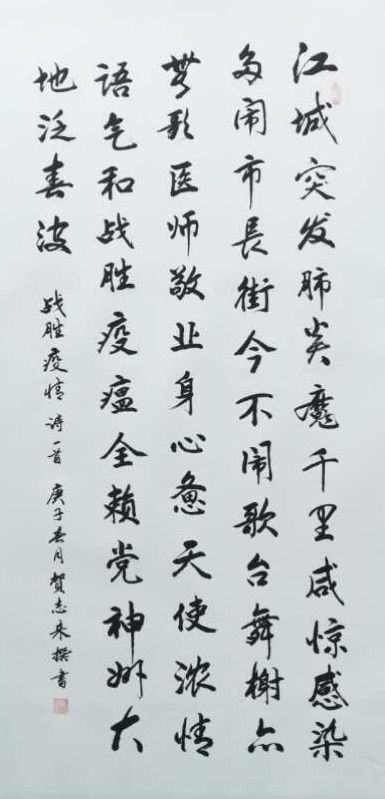 江城突发肺炎魔千里咸惊感染
多闹市長街今不闹歌台舞榭亦
無歌医师敬业身心惫天使浓情
语气和战胜疫瘟全赖党神州大
地泛春波
战胜疫情 诗一首 庚子春月贺志来撰书